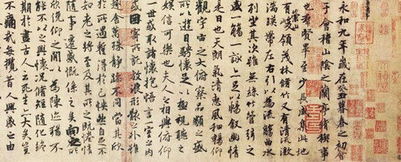 永和九年歲在癸丑暮春之初會
于會稽山陰之蘭亭脩禊事
也羣賢畢至少長咸集此地
有崇山峻領茂林脩竹又有清流激
湍暎帶左右引以為流觴曲水
列坐其次雖無絲竹管弦之
盛一觴一詠亦足以暢敘幽情
是日也天朗氣清惠風和暢仰
觀宇宙之大俯察品類之盛
所以遊目騁懷足以極視聽之
娛信可樂也夫人之相與俯仰
一世或取諸懷抱悟言一室之內
或因寄所託放浪形骸之外雖
趣舍萬殊靜躁不同當其欣
於所遇蹔得於己怏然自足不
知老之將至及其所之既惓情
隨事遷感慨係之矣向之所
欣俛仰之間以為陳迹猶不
能不以之興懷況脩短隨化終
期於盡古人云死生亦大矣豈
不痛哉每攬昔人興感之由